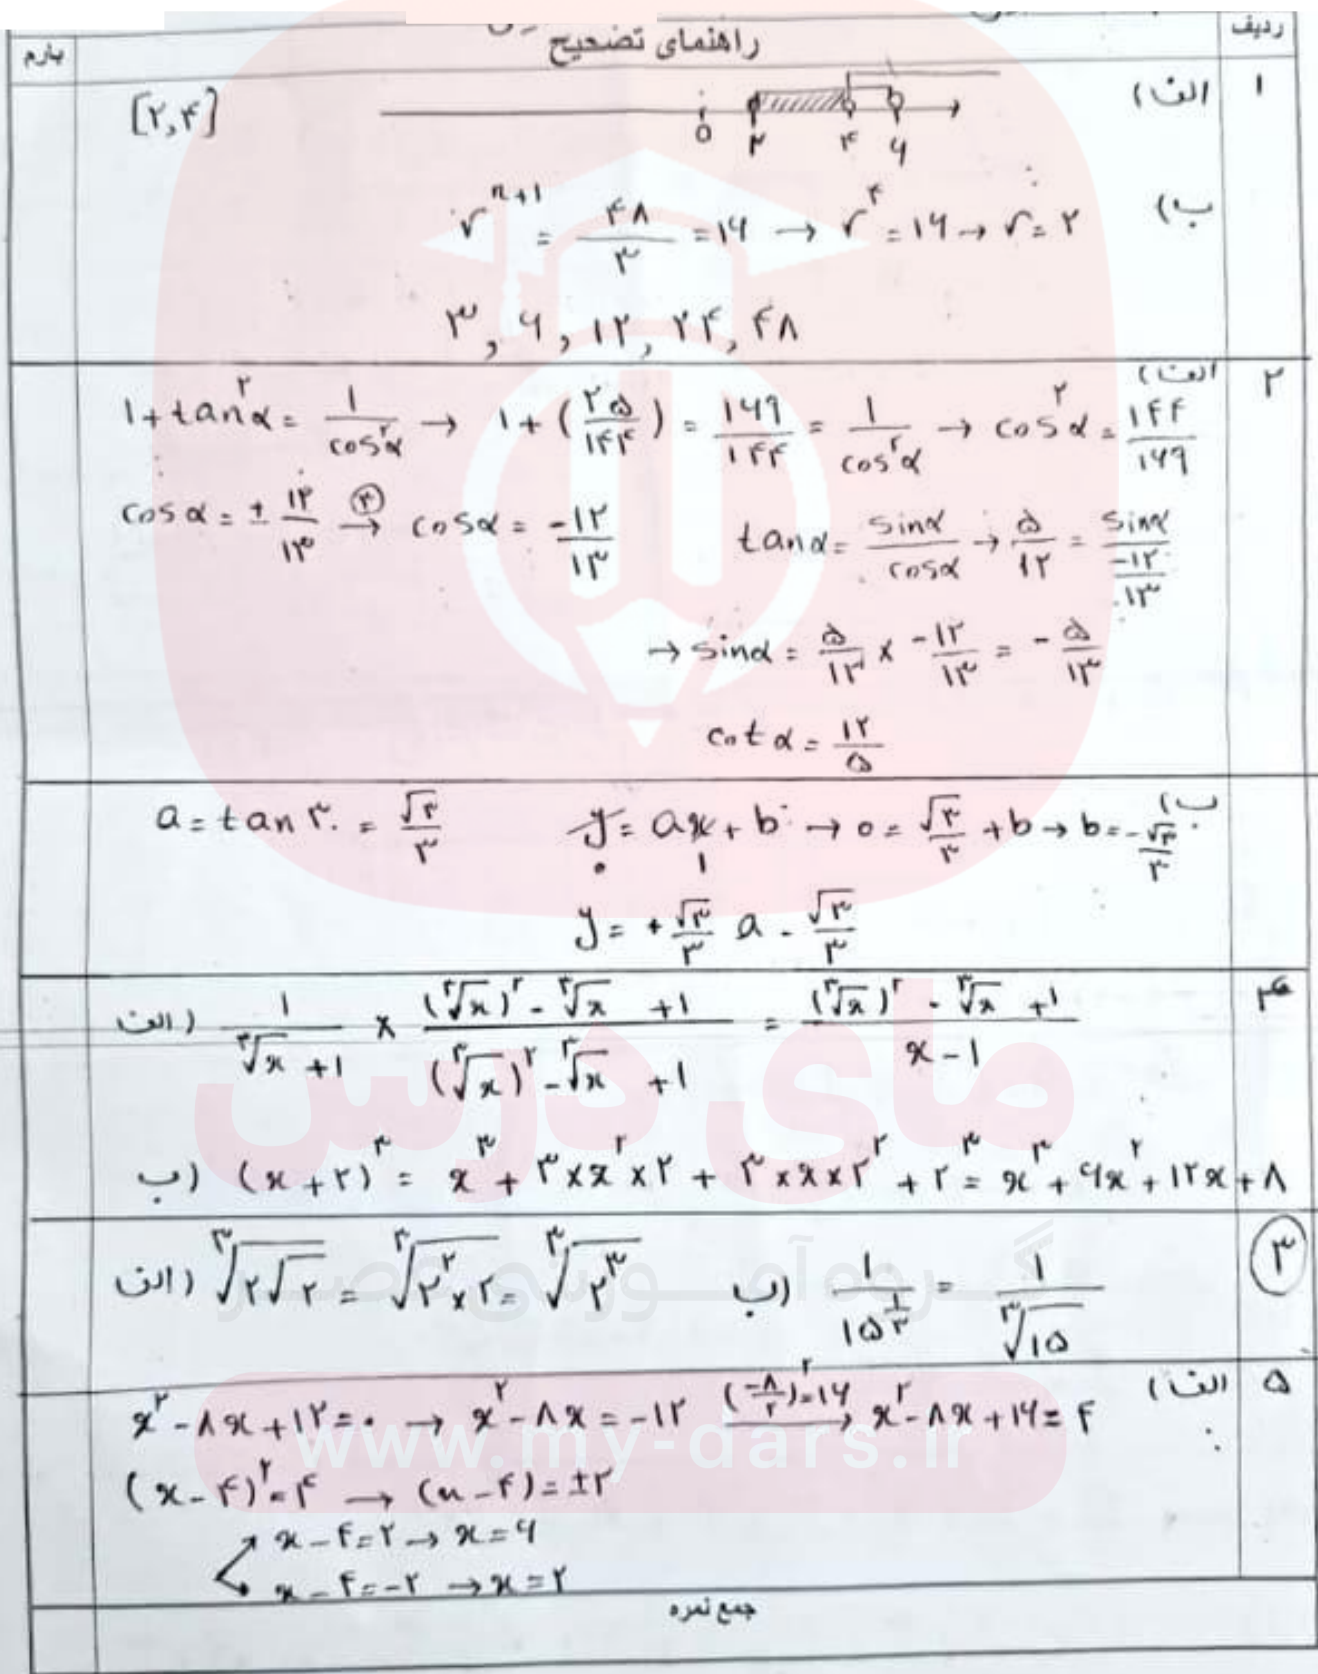 ردیف راهنمای تصحیح بارم
۱ الف) ۰ ۲ ۴ ۶ [۲,۴]
ب) r^(n+1) = ۴۸/۳ = ۱۶ → r^۴ = ۱۶ → r = ۲
۳, ۶, ۱۲, ۲۴, ۴۸
۲ الف)
1 + tan^۲α = 1/cos^۲α → 1 + (۲۵/۱۴۴) = ۱۶۹/۱۴۴ = 1/cos^۲α → cos^۲α = ۱۴۴/۱۶۹
cosα = ± ۱۲/۱۳ →(۳) cosα = -۱۲/۱۳ tanα = sinα/cosα → ۵/۱۲ = sinα/(-۱۲/۱۳)
→ sinα = ۵/۱۲ × -۱۲/۱۳ = - ۵/۱۳
cot α = ۱۲/۵
ب) a = tan ۳۰ = √۳/۳ y = ax + b → ۰ = √۳/۳ + b → b = -√۳/۳
۰ ۱
y = +√۳/۳ a - √۳/۳
۴ الف) 1/(∛x + 1) × ((∛x)^۲ - ∛x + 1)/((∛x)^۲ - ∛x + 1) = ((∛x)^۲ - ∛x + 1)/(x - 1)
ب) (x + ۲)^۳ = x^۳ + ۳ × x^۲ × ۲ + ۳ × x × ۲^۲ + ۲^۳ = x^۳ + ۶x^۲ + ۱۲x + ۸
۳ الف) ∛(۲√۲) = ∛(۲^۲ × ۲) = ∛(۲^۳) ب) 1/۱۵^(۱/۳) = 1/∛۱۵
۵ الف)
x^۲ - ۸x + ۱۲ = ۰ → x^۲ - ۸x = -۱۲ →((-۸/۲)^۲ = ۱۶) x^۲ - ۸x + ۱۶ = ۴
(x - ۴)^۲ = ۴ → (x - ۴) = ±۲
x - ۴ = ۲ → x = ۶
x - ۴ = -۲ → x = ۲
جمع نمره
مای درس
گروه آموزشی عصر
www.my-dars.ir